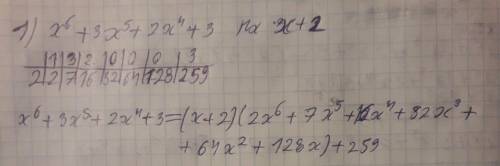 1) x⁶ + 3x⁵ + 2x⁴ + 3 на x + 2
| 1 | 3 | 2 | 0 | 0 | 0 | 3
2 | 2 | 7 | 16 | 32 | 64 | 128 | 259
x⁶ + 3x⁵ + 2x⁴ + 3 = (x+2)(2x⁶ + 7x⁵ + 16x⁴ + 32x³ +
+ 64x² + 128x) + 259